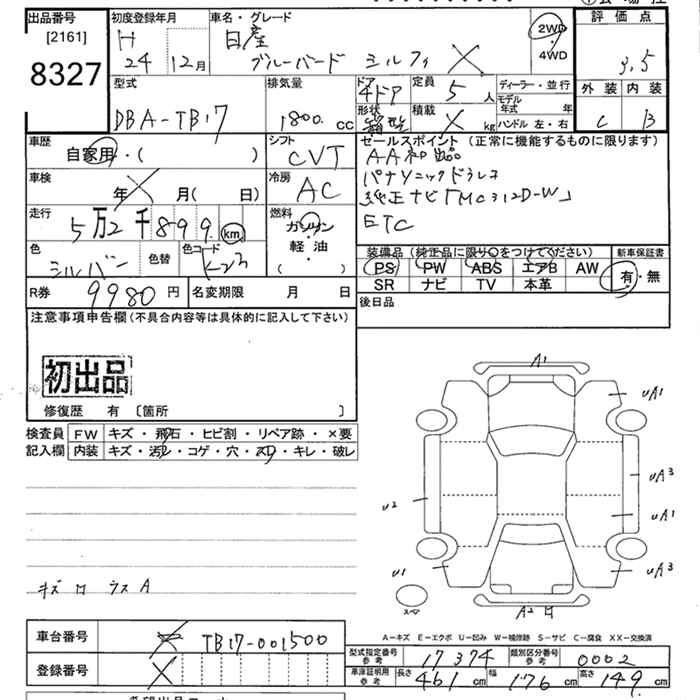 出品番号
[2161]
8327
初度登録年月
H 24 12月
車名・グレード
日産
ブルーバード シルフィ
2WD
・
4WD
評価点
3,5
外装 内装
C B
型式
DBA-TB17
排気量
1800 cc
ドア
4ドア
形状
箱型
定員
5人
積載
kg
ディーラー・並行
モデル年式 年
ハンドル 左・右
車歴
自家用・( )
シフト
CVT
セールスポイント (正常に機能するものに限ります)
AA初出品
パナソニックドラレコ
純正ナビ「MC312D-W」
ETC
車検
年 月( 日)
冷房
AC
走行
5万2千899km
燃料
ガソリン
軽・油
( )
色
シルバー
色替
色コード
K23
装備品(純正品に限り○をつけてください)
PS PW ABS エアB AW
SR ナビ TV 本革
新車保証書
有・無
R券 9980円
名変期限 月 日
後日品
注意事項申告欄(不具合内容等は具体的に記入して下さい)
初出品
修復歴 有 〔箇所 〕
検査員 FW キズ・飛石・ヒビ割・リペア跡・×要
記入欄 内装 キズ・汚レ・コゲ・穴・スレ・キレ・破レ
A1
UA1
UA3
U2
UA1
U1
UA3
スペア
A2
A-キズ E-エクボ U-凹み W-補修跡 S-サビ C-腐食 XX-交換済
車台番号 TB17-001500
登録番号
型式指定番号 参考 17374
類別区分番号 参考 0002
車庫証明用 参考 長さ 461cm 幅 176cm 高さ 149cm